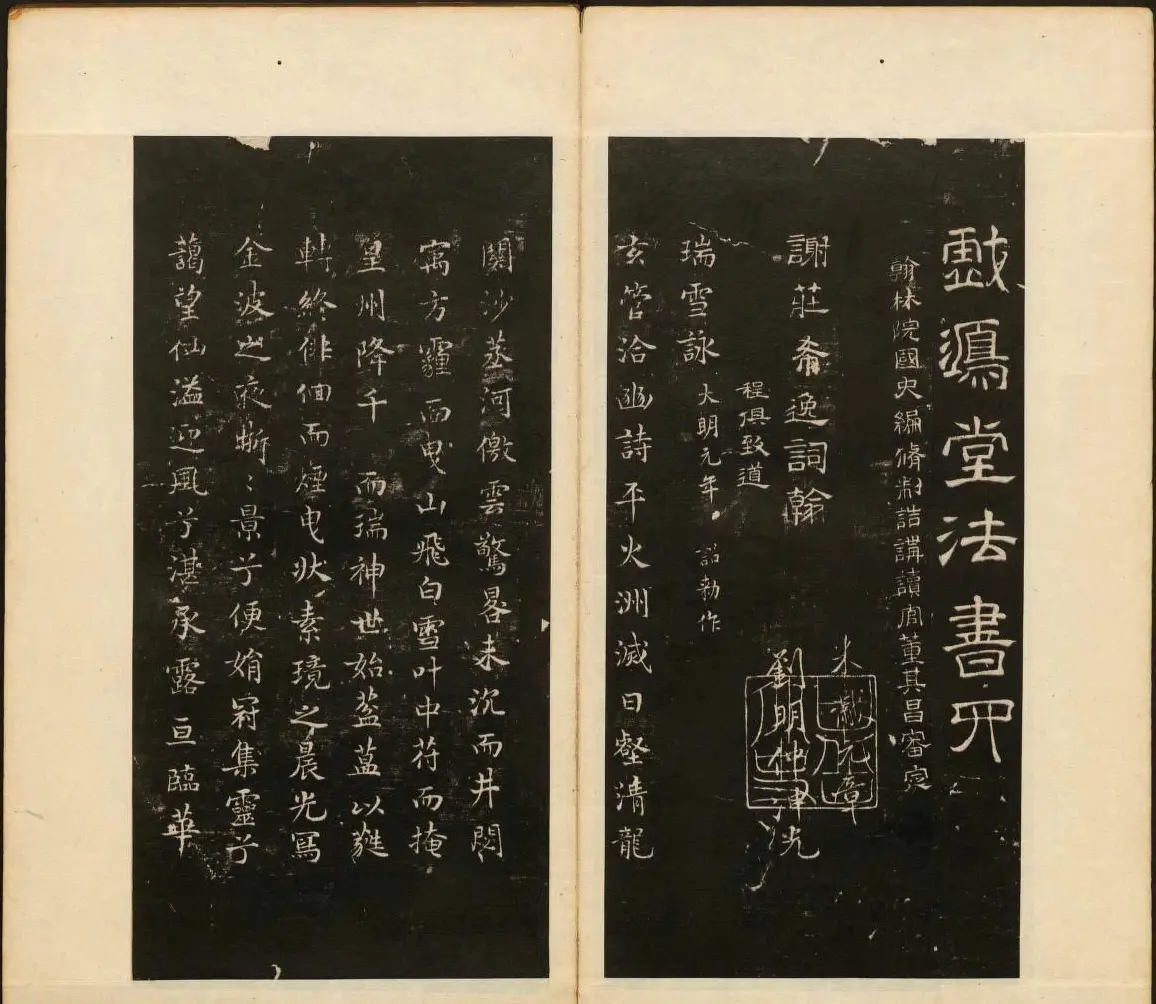 戲鴻堂法書四
翰林院國史編脩制誥講讀官董其昌審定
謝莊希逸詞翰
米黻元章
劉明仲沖光
程俱致道
瑞雪詠 大明元年 詔勑作
玄管洽幽詩平火洲滅日壑清龍
關沙蒸河徼雲驚晷未沉而井閟
寓方霾而曳山飛白雪叶中苻而掩
皇州降千而瑞神世始葐蒀以蕤
轉終俳佪而煙曳狀素境之晨光寫
金波之夜晰晰景兮便娟罥集靈兮
藹望仙溢迎風兮湛承露亘臨華